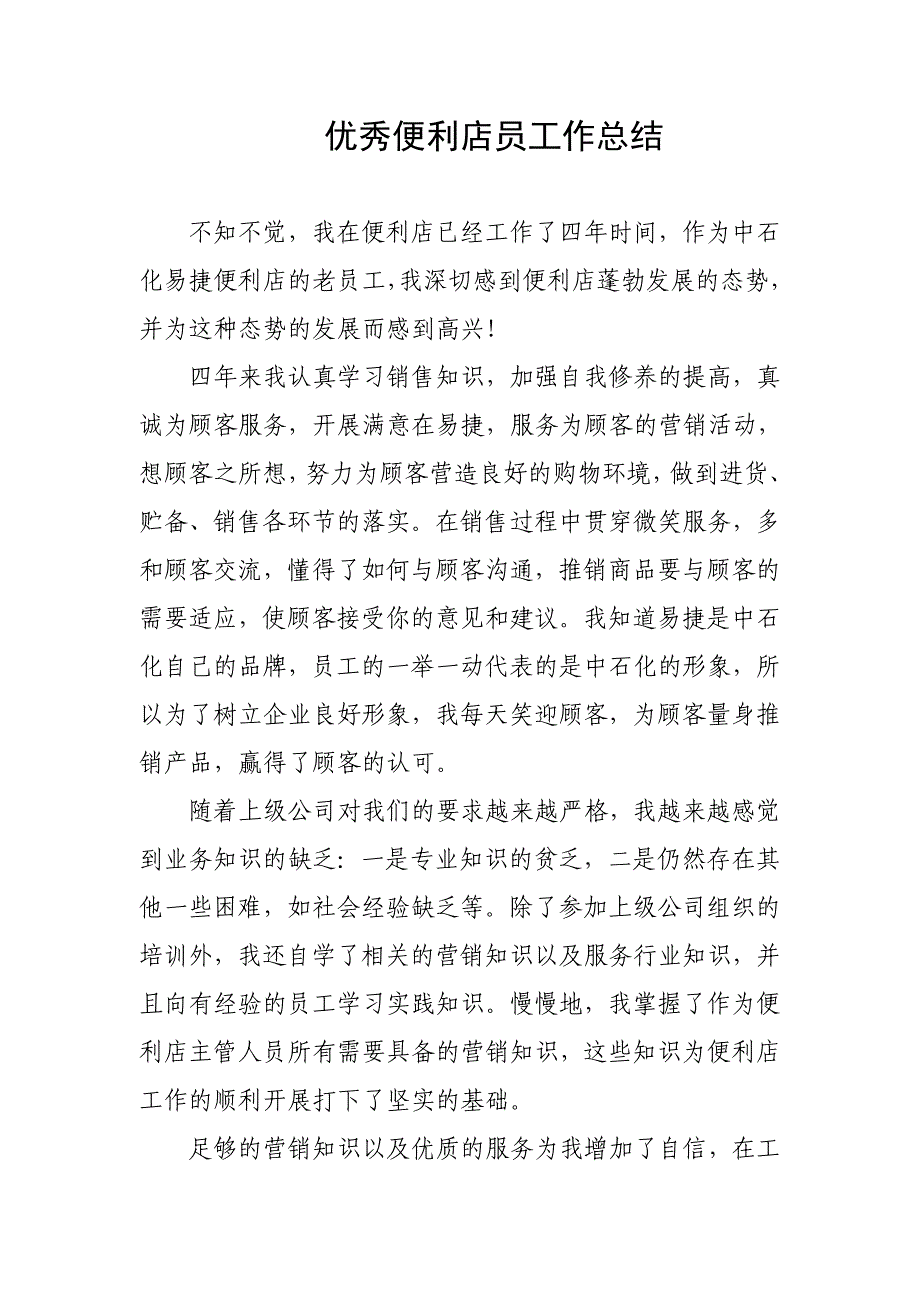 优秀便利店员工作总结
不知不觉，我在便利店已经工作了四年时间，作为中石
化易捷便利店的老员工，我深切感到便利店蓬勃发展的态势，
并为这种态势的发展而感到高兴！
四年来我认真学习销售知识，加强自我修养的提高，真
诚为顾客服务，开展满意在易捷，服务为顾客的营销活动，
想顾客之所想，努力为顾客营造良好的购物环境，做到进货、
贮备、销售各环节的落实。在销售过程中贯穿微笑服务，多
和顾客交流，懂得了如何与顾客沟通，推销商品要与顾客的
需要适应，使顾客接受你的意见和建议。我知道易捷是中石
化自己的品牌，员工的一举一动代表的是中石化的形象，所
以为了树立企业良好形象，我每天笑迎顾客，为顾客量身推
销产品，赢得了顾客的认可。
随着上级公司对我们的要求越来越严格，我越来越感觉
到业务知识的缺乏：一是专业知识的贫乏，二是仍然存在其
他一些困难，如社会经验缺乏等。除了参加上级公司组织的
培训外，我还自学了相关的营销知识以及服务行业知识，并
且向有经验的员工学习实践知识。慢慢地，我掌握了作为便
利店主管人员所有需要具备的营销知识，这些知识为便利店
工作的顺利开展打下了坚实的基础。
足够的营销知识以及优质的服务为我增加了自信，在工